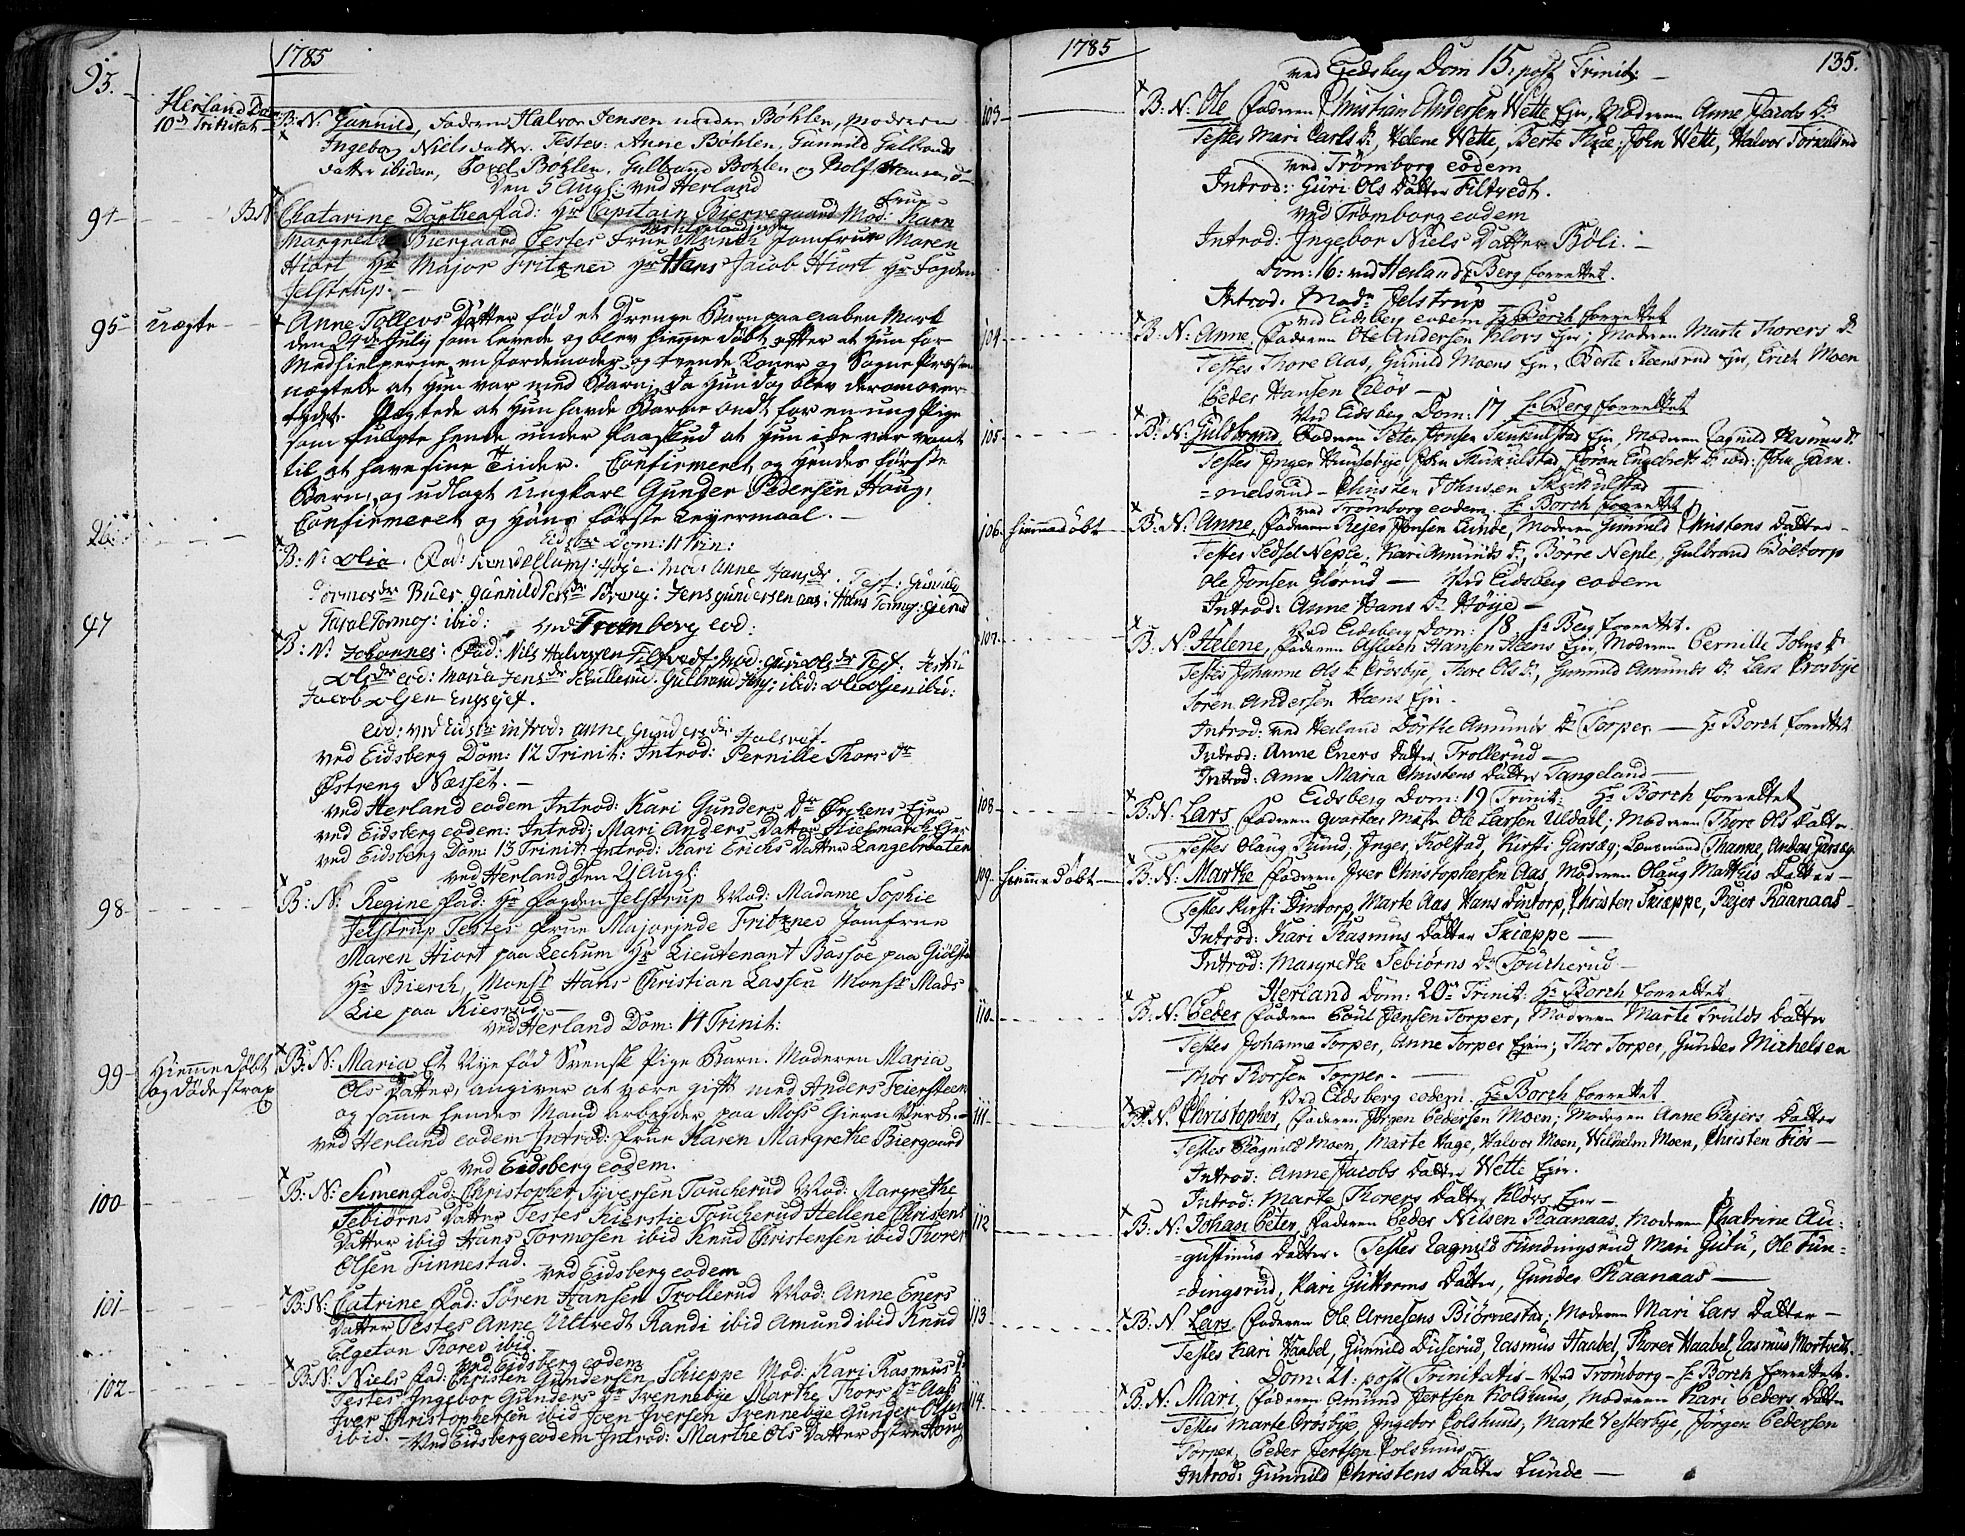 1785
93.
Herland Dom
10de Trinitat:
B: N: Gunnild, Faderen Halvor Jensen under Bøhlen, Moderen
Ingebor Niels datter. Testes: Anne Bøhlen, Gunnild Gulbrands
datter ibidem, Bøhlen, Gulbrand Bøhlen og Rolf Hansen
Den 5 Augs: ved Herland
94 B: N: Chatarine Dorthea Fad: Hr Capitain Bierregaard Mod: Frue Karn
Margrethe Biergaard Testes Frue Munch Jomfrue Maren
Hiort Hr Major Fritzner Hr Hans Jacob Hiort Hr Fogden
Jelstrup. —
95 Uægte Anne Tollevs Datter fød et Drenge Barn paa aaben Mark
den 24de July som levede og blev hiemme døbt efter at hun for
Medhielperne en Jordemoder og tvende Koner og Sogne Præsten
nægtede at hun var med Barn; da hun dog blev derom over-
tydet. Nægtede at hun havde Barne ondt for en ung Pige
som fulgte hende under Paaskud at hun ikke var vant
til at have sine Tiider. Confirmeret og hendes første
Barn, og udlagt Ungkarl Gunder Pedersen Houg,
Confirmeret og hans første Leyermaal. —
Eidsbr Dom: 11 Trin:
96 B: N: Olia. Fad: Høje. Mod: Anne Hansdr. Test: Gunnild
Tormosdr Buer, Gunnild : Jens Gundersen Aas: Hans Tormos:
Tormos: ibid:
ved Trømborg eod:
97 B: N: Johannes: Fad: Nils Halvorsen Filtvedt Mod: Guri Olsdr Test:
Olsdr eod: Maria Jensdr Skillerud. Gulbrand Jens: ibid: Ole Olsen ibid:
Jacob Olsen Engsyet.
eod: ved Eidsbr introd: Anne Gundersdr Halsrøt.
ved Eidsberg Dom: 12 Trinit: Introd: Pernille Thors Dtr
Østreng Næsset. —
ved Herland eodem Introd: Kari Gunders Dr Ejer
ved Eidsberg eodem: Introd; Mari Anders Datter Ejer
ved Eidsberg Dom: 13 Trinit: Introd: Kari Erichs Datter Langebraaten
ved Herland Den 21 Augs:
98 B: N: Regine Fad: Hr Fogden Jelstrup Mod: Madame Sophie
Jelstrup Testes Frue Majorinde Fritzner Jomfrue
Maren Hiort paa Lechum Hr Lieutenant Bassøe paa
Hr Bierch, Monsr Hans Christian Lassen Monsr Mads
Lie paa Kiesrud. —
ved Herland Dom: 14 Trinit:
99 Hiemme Døbt og Døde strax B: N: Maria Et Nye fød Svensk Pige Barn. Moderen Maria
Ols Datter, angiver at være gift med Anders Feiersteen
og samme hendes Mand arbeyder paa Moss Giern Verk. —
ved Herland eodem Introd: Frue Karen Margrethe Biergaard
ved Eidsberg eodem.
100 B: N: Simen Fad: Christopher Syversen Toucherud Mod: Margrethe
Tebiørns Datter Testes Kierstie Toucherud Hellene Christens
Datter ibid Hans Tormosen ibid Knud Christensen ibid Thorer
Olsen Finnestad.
ved Eidsberg eodem
101 B: N: Catrine Fad: Søren Hansen Trollerud Mod: Anne Eners
Datter Testes Anne Ultvedt Randi ibid Amund ibid Knud
Elgeton Thorer ibid.
ved Eidsberg eodem
102 B: N: Niels Fad: Christen Gundersen Schieppe Mod: Kari Rasmus D
Testes Ingebor Gunders Dr Svennebye Marthe Thors Dr Aas
Iver Christophersen ibid Joen Iversen Svennebye Gunder Olsen
ibid. — Ved Eidsberg eodem Introd: Marthe Ols Datter østre Houg
1785 135.
ved Eidsberg Dom 15. post Trinit: —
103 B: N: Ole Faderen Christian Andersen Wette Ejr, Moderen Anne Jacobs Dr
Testes Mari Carls Dr, Helene Wette, Berte; John Wette, Halvor Torkelsrud
ved Trømborg eodem
Introd: Guri Ols Datter Filtvedt.
ved Trømborg eodem
Introd: Ingebor Niels Datter Bøli. —
Dom: 16: ved Herland, Hr Berg forrettet.
Introd. Madm Jelstrup
ved Eidsberg eodem Hr Borch forrettet
104 B: N: Anne, Faderen Ole Andersen Kløvs Ejr, Moderen Marte Thorers Dr
Testes Thore Aas, Gunild Moens Ejr, Berte Steensrud Ejr, Erich Moen
Peder Hansen Kløv —
Ved Eidsberg Dom: 17 Hr Berg forrettet
105 B: N: Guldbrand, Faderen Peter Jensen Skukulstad Ejr, Moderen Ragnild Rasmus Dr
Testes Inger Huusebye, John Skukulstad, Søren Engebrets Dr ibid: John Gam-
=melsrud — Christen Johnsen Skukulstad
ved Trømborg eodem. Hr Borch forrettet
106 hiemmedøbt B: N: Anne, Faderen Rejer Jonsen Lunde, Moderen Gunnild Christens Datter —
Testes Sidsel Neple, Kari Amunds Dr, Børre Neple, Gulbrand Bøltorp
Ole Jonsen Glørud — Ved Eidsberg eodem
Introd: Anne Hans Dr Høije —
Ved Eidsberg Dom: 18 Hr Berg forrettet.
107 B: N: Helene, Faderen Aslach Hansen Heens Ejr, Moderen Pernille Johns Dr
Testes Johanne Ols Dr Crosbye, Thore Ols Dr, Gunnild Amunds Dr Lars Crosbye
Søren Andersen Hæns Ejr.
Introd: ved Herland Dorthe Amunds Dr Torper — Hr Borch forrettet
Introd: Anne Eners Datter Trollerud —
Introd: Anne Maria Christens Datter Tangeland —
Eidsberg Dom: 19 Trinit: Hr Borch forrettet
108 B: N: Lars, Faderen Qvarter Mester Ole Larsen Uldahl, Moderen Thore Ols Datter
Testes Olaug Ruud, Inger Kolstad, Kirsti Garseg; Lensmand Thanne, Anders Garseg.
109 hiemmedøbt B: N: Marthe Faderen Iver Christophersen Aas, Moderen Olaug Matthis Datter —
Testes Kirsti Dintorp, Marte Aas, Hans Dintorp, Christen Skieppe, Rejer Raanaas —
Introd: Kari Rasmus Datter Skieppe —
Introd: Margrethe Tebiørns Dr Toucherud —
Herland Dom: 20de Trinit: Hr Borch forrettet
110 B: N: Peder Faderen Poul Jensen Torper, Moderen Marte Truls Datter
Testes Johanne Torper, Anne Torper Ejern; Thor Torper, Gunder Michelsen
Thor Thorsen Torper. —
Ved Eidsberg eodem. Hr Borch forrettet
111 B: N: Christopher, Faderen Jørgen Pedersen Moen; Moderen Anne Rejers Datter
Testes Ragnild Moen, Marte Hage, Halvor Moen, Wilhelm Moen, Christen Fiøs —
Introd: Anne Jacobs Datter Wette Ejr.
Introd: Marte Thorers Datter Kløvs Ejr —
112 B: N: Johan Peter, Faderen Peder Nilsen Raanaas, Moderen Chatrine Au-
=gustinus Datter. Testes Ragnild Fundingsrud Mari Gutu, Ole Fun-
=dingsrud, Kari Guttorms Datter, Gunder Raanaas —
113 B: N. Lars, Faderen Ole Arnesens Biørnestad; Moderen Mari Lars Datter —
Testes Kari Haabel, Gunnild Duserud, Rasmus Haabel, Thorer Haabel, Rasmus Mortvedt.
Dom: 21: post Trinitatis — Ved Trømborg — Hr Borch forrettet.
114. B: N: Mari, Faderen Amund Jertsen Kolshuus, Moderen Kari Peders Datter
Testes Marte Crosbye, Ingebor Colshuus, Marte Vesterbye, Jørgen Pedersen
Torper, Peder Jertsen Colshuus
Introd: Gunnild Christens Datter Lunde —